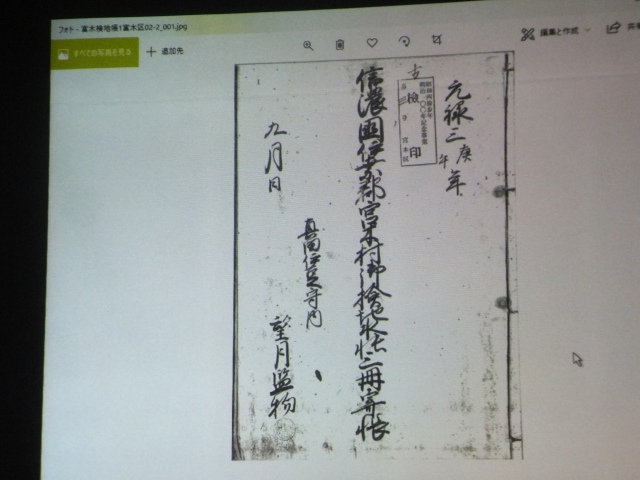 フォト - 富木検地帳1富木区02-2_001.jpg
すべての写真を見る
追加先
編集と作成
共有
元禄三庚午年
古
検
印
信濃國伊奈郡宮木村御検地水帳三冊寄帳
九月日
真田伊豆守内
望月監物